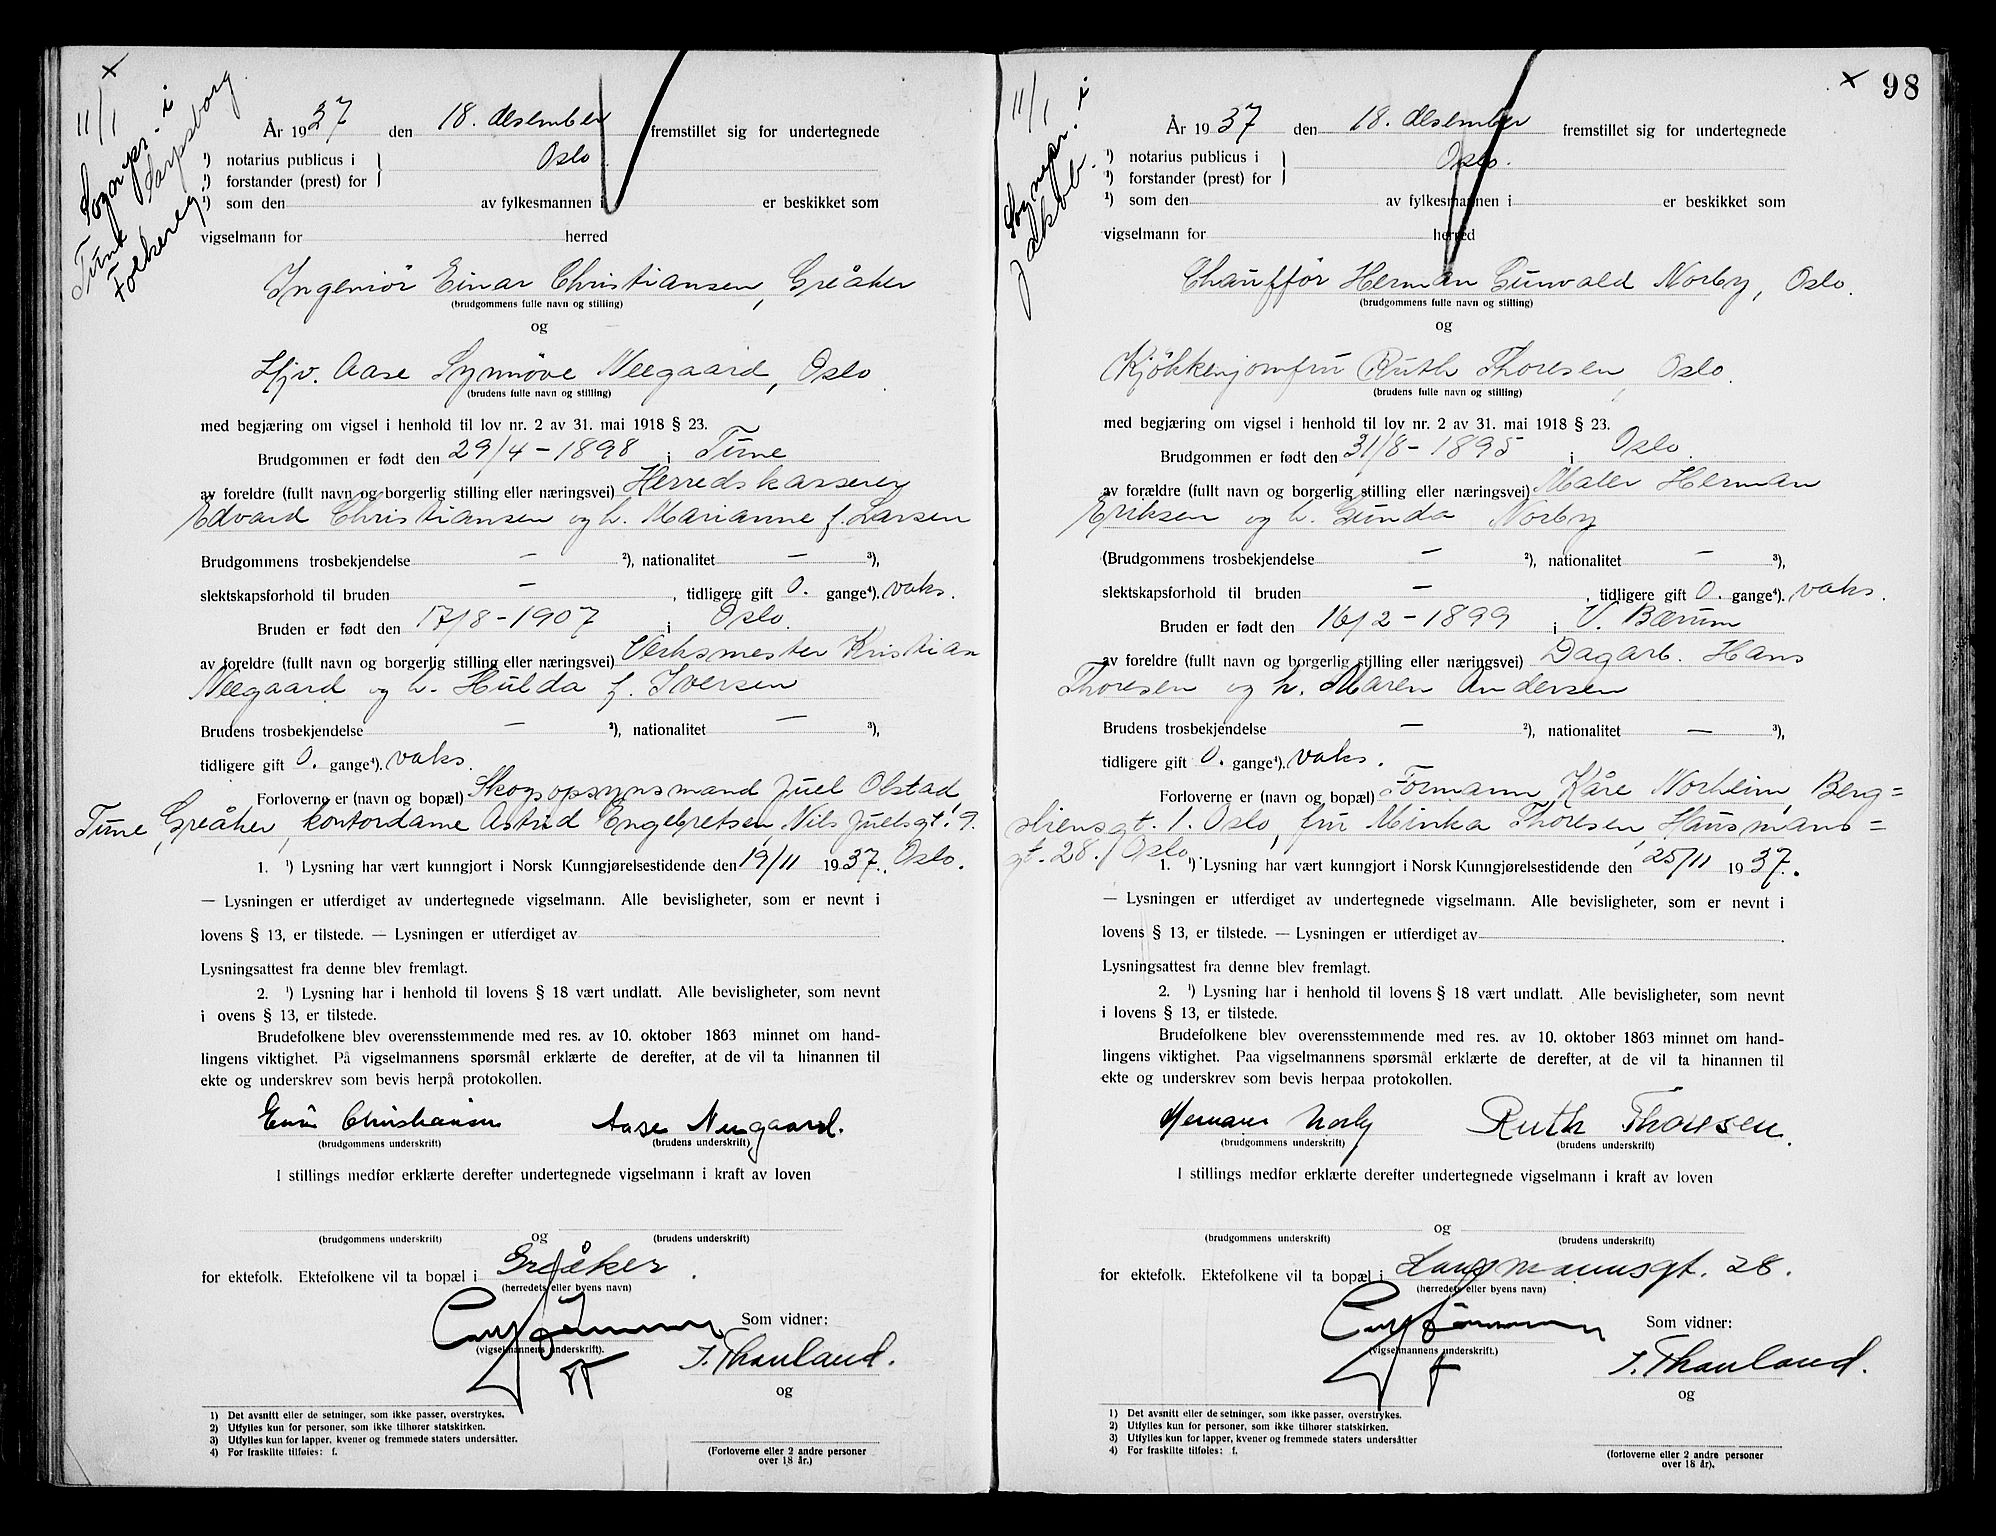 x
11/1
Sognepr. i
Tune
Sarpsborg
Folkereg.
År 1937 den 18. desember fremstillet sig for undertegnede
¹) notarius publicus i
Oslo.
¹) forstander (prest) for
¹) som den av fylkesmannen i er beskikket som
vigselmann for herred
Ingeniör Einar Christiansen, Greåker
(brudgommens fulle navn og stilling)
og
Hjv. Aase Synnöve Neegaard, Oslo.
(brudens fulle navn og stilling)
med begjæring om vigsel i henhold til lov nr. 2 av 31. mai 1918 § 23.
Brudgommen er født den 29/4 - 1898 i Tune
av foreldre (fullt navn og borgerlig stilling eller næringsvei) Herredskasserer
Edvard Christiansen og h. Marianne f. Larsen
Brudgommens trosbekjendelse - ²), nationalitet - ³),
slektskapsforhold til bruden - , tidligere gift 0. gange⁴). vaks.
Bruden er født den 17/8 - 1907 i Oslo.
av foreldre (fullt navn og borgerlig stilling eller næringsvei) Verksmester Kristian
Neegaard og h. Hulda f. Iversen
Brudens trosbekjendelse - ²), nationalitet - ³),
tidligere gift 0. gange⁴). vaks.
Forloverne er (navn og bopæl) Skogsopsynsmand Juel Olstad,
Tune, Greåker, kontordame Astrid Engebretsen, Nils Juelsgt. 9.
1. ¹) Lysning har vært kunngjort i Norsk Kunngjørelsestidende den 19/11 1937. Oslo.
— Lysningen er utferdiget av undertegnede vigselmann. Alle bevisligheter, som er nevnt i
lovens § 13, er tilstede. — Lysningen er utferdiget av
Lysningsattest fra denne blev fremlagt.
2. ¹) Lysning har i henhold til lovens § 18 vært undlatt. Alle bevisligheter, som nevnt
i ovens § 13, er tilstede.
Brudefolkene blev overensstemmende med res. av 10. oktober 1863 minnet om hand-
lingens viktighet. På vigselmannens spørsmål erklærte de derefter, at de vil ta hinannen til
ekte og underskrev som bevis herpå protokollen.
Einar Christiansen Aase Neegaard.
(brudgommens underskrift) (brudens underskrift)
I stillings medfør erklærte derefter undertegnede vigselmann i kraft av loven
og
(brudgommens underskrift) (brudens underskrift)
for ektefolk. Ektefolkene vil ta bopæl i Greåker.
(herredets eller byens navn)
Som vidner:
(vigselmannens underskrift).
J. Thauland.
og
1) Det avsnitt eller de setninger, som ikke passer, overstrykes.
2) Utfylles kun for personer, som ikke tilhører statskirken.
3) Utfylles kun for lapper, kvener og fremmede staters undersåtter.
4) For fraskilte tilføies: f.
(Forloverne eller 2 andre personer
over 18 år.)
x 98
11/1
Sognepr. i
Jakob.
År 1937 den 18. desember fremstillet sig for undertegnede
¹) notarius publicus i
Oslo.
¹) forstander (prest) for
¹) som den av fylkesmannen i er beskikket som
vigselmann for herred
Chaufför Herman Gunvald Norby, Oslo.
(brudgommens fulle navn og stilling)
og
Kjökkenjomfru Ruth Thoresen, Oslo.
(brudens fulle navn og stilling)
med begjæring om vigsel i henhold til lov nr. 2 av 31. mai 1918 § 23.
Brudgommen er født den 31/8 - 1895 i Oslo.
av forældre (fullt navn og borgerlig stilling eller næringsvei) Maler Herman
Eriksen og h. Gunda Norby
(Brudgommens trosbekjendelse - ²), nationalitet - ³),
slektskapsforhold til bruden - , tidligere gift 0. gange⁴). vaks.
Bruden er født den 16/2 - 1899 i V. Bærum
av foreldre (fullt navn og borgerlig stilling eller næringsvei) Dagarb. Hans
Thoresen og h. Maren Andersen
Brudens trosbekjendelse - ²), nationalitet - ³),
tidligere gift 0. gange⁴). vaks.
Forloverne er (navn og bopæl) Formann Kåre Norheim, Berg=
sliensgt. 1. Oslo, fru Minka Thoresen, Hausmans=
gt. 28. Oslo.
1. ¹) Lysning har vært kunngjort i Norsk Kunngjørelsestidende den 25/11 1937.
— Lysningen er utferdiget av undertegnede vigselmann. Alle bevisligheter, som er nevnt i
lovens § 13, er tilstede. — Lysningen er utferdiget av
Lysningsattest fra denne blev fremlagt.
2. ¹) Lysning har i henhold til lovens § 18 vært undlatt. Alle bevisligheter, som nevnt
i lovens § 13, er tilstede.
Brudefolkene blev overensstemmende med res. av 10. oktober 1863 minnet om hand-
lingens viktighet. Paa vigselmannens spørsmål erklærte de derefter, at de vil ta hinannen til
ekte og underskrev som bevis herpaa protokollen.
Herman Norby Ruth Thoresen.
(brudgommens underskrift) (brudens underskrift)
I stillings medfør erklærte derefter undertegnede vigselmann i kraft av loven
og
(brudgommens underskrift) (brudens underskrift)
for ektefolk. Ektefolkene vil ta bopæl i Hausmannsgt. 28.
(herredets eller byens navn)
Som vidner:
(vigselmannens underskrift.)
J. Thauland.
og
1) Det avsnitt eller de setninger, som ikke passer, overstrykes.
2) Utfylles kun for personer, som ikke tilhører statskirken.
3) Utfylles kun for lapper, kvener og fremmede staters undersåtter
4) For fraskilte tilføies: f.
(forloverne eller 2 andre personer
over 18 år).